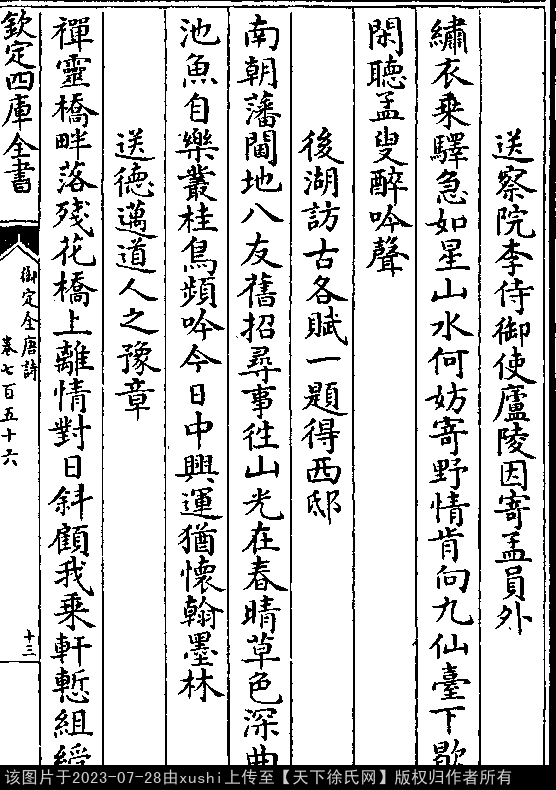 送察院李侍御使廬陵因寄孟員外
繡衣乘驛急如星山水何妨寄野情肯向九仙臺下歇
閑聽孟叟醉吟聲
後湖訪古各賦一題得西邸
南朝藩閫地八友舊招尋事往山光在春晴草色深曲
池魚自樂叢桂鳥頻吟今日中興運猶懷翰墨林
送德邁道人之豫章
禪靈橋畔落殘花橋上離情對日斜顧我乘軒慙組綬
欽定四庫全書
御定全唐詩
卷七百五十六
十三
该图片于2023-07-28由xushi上传至【天下徐氏网】版权归作者所有